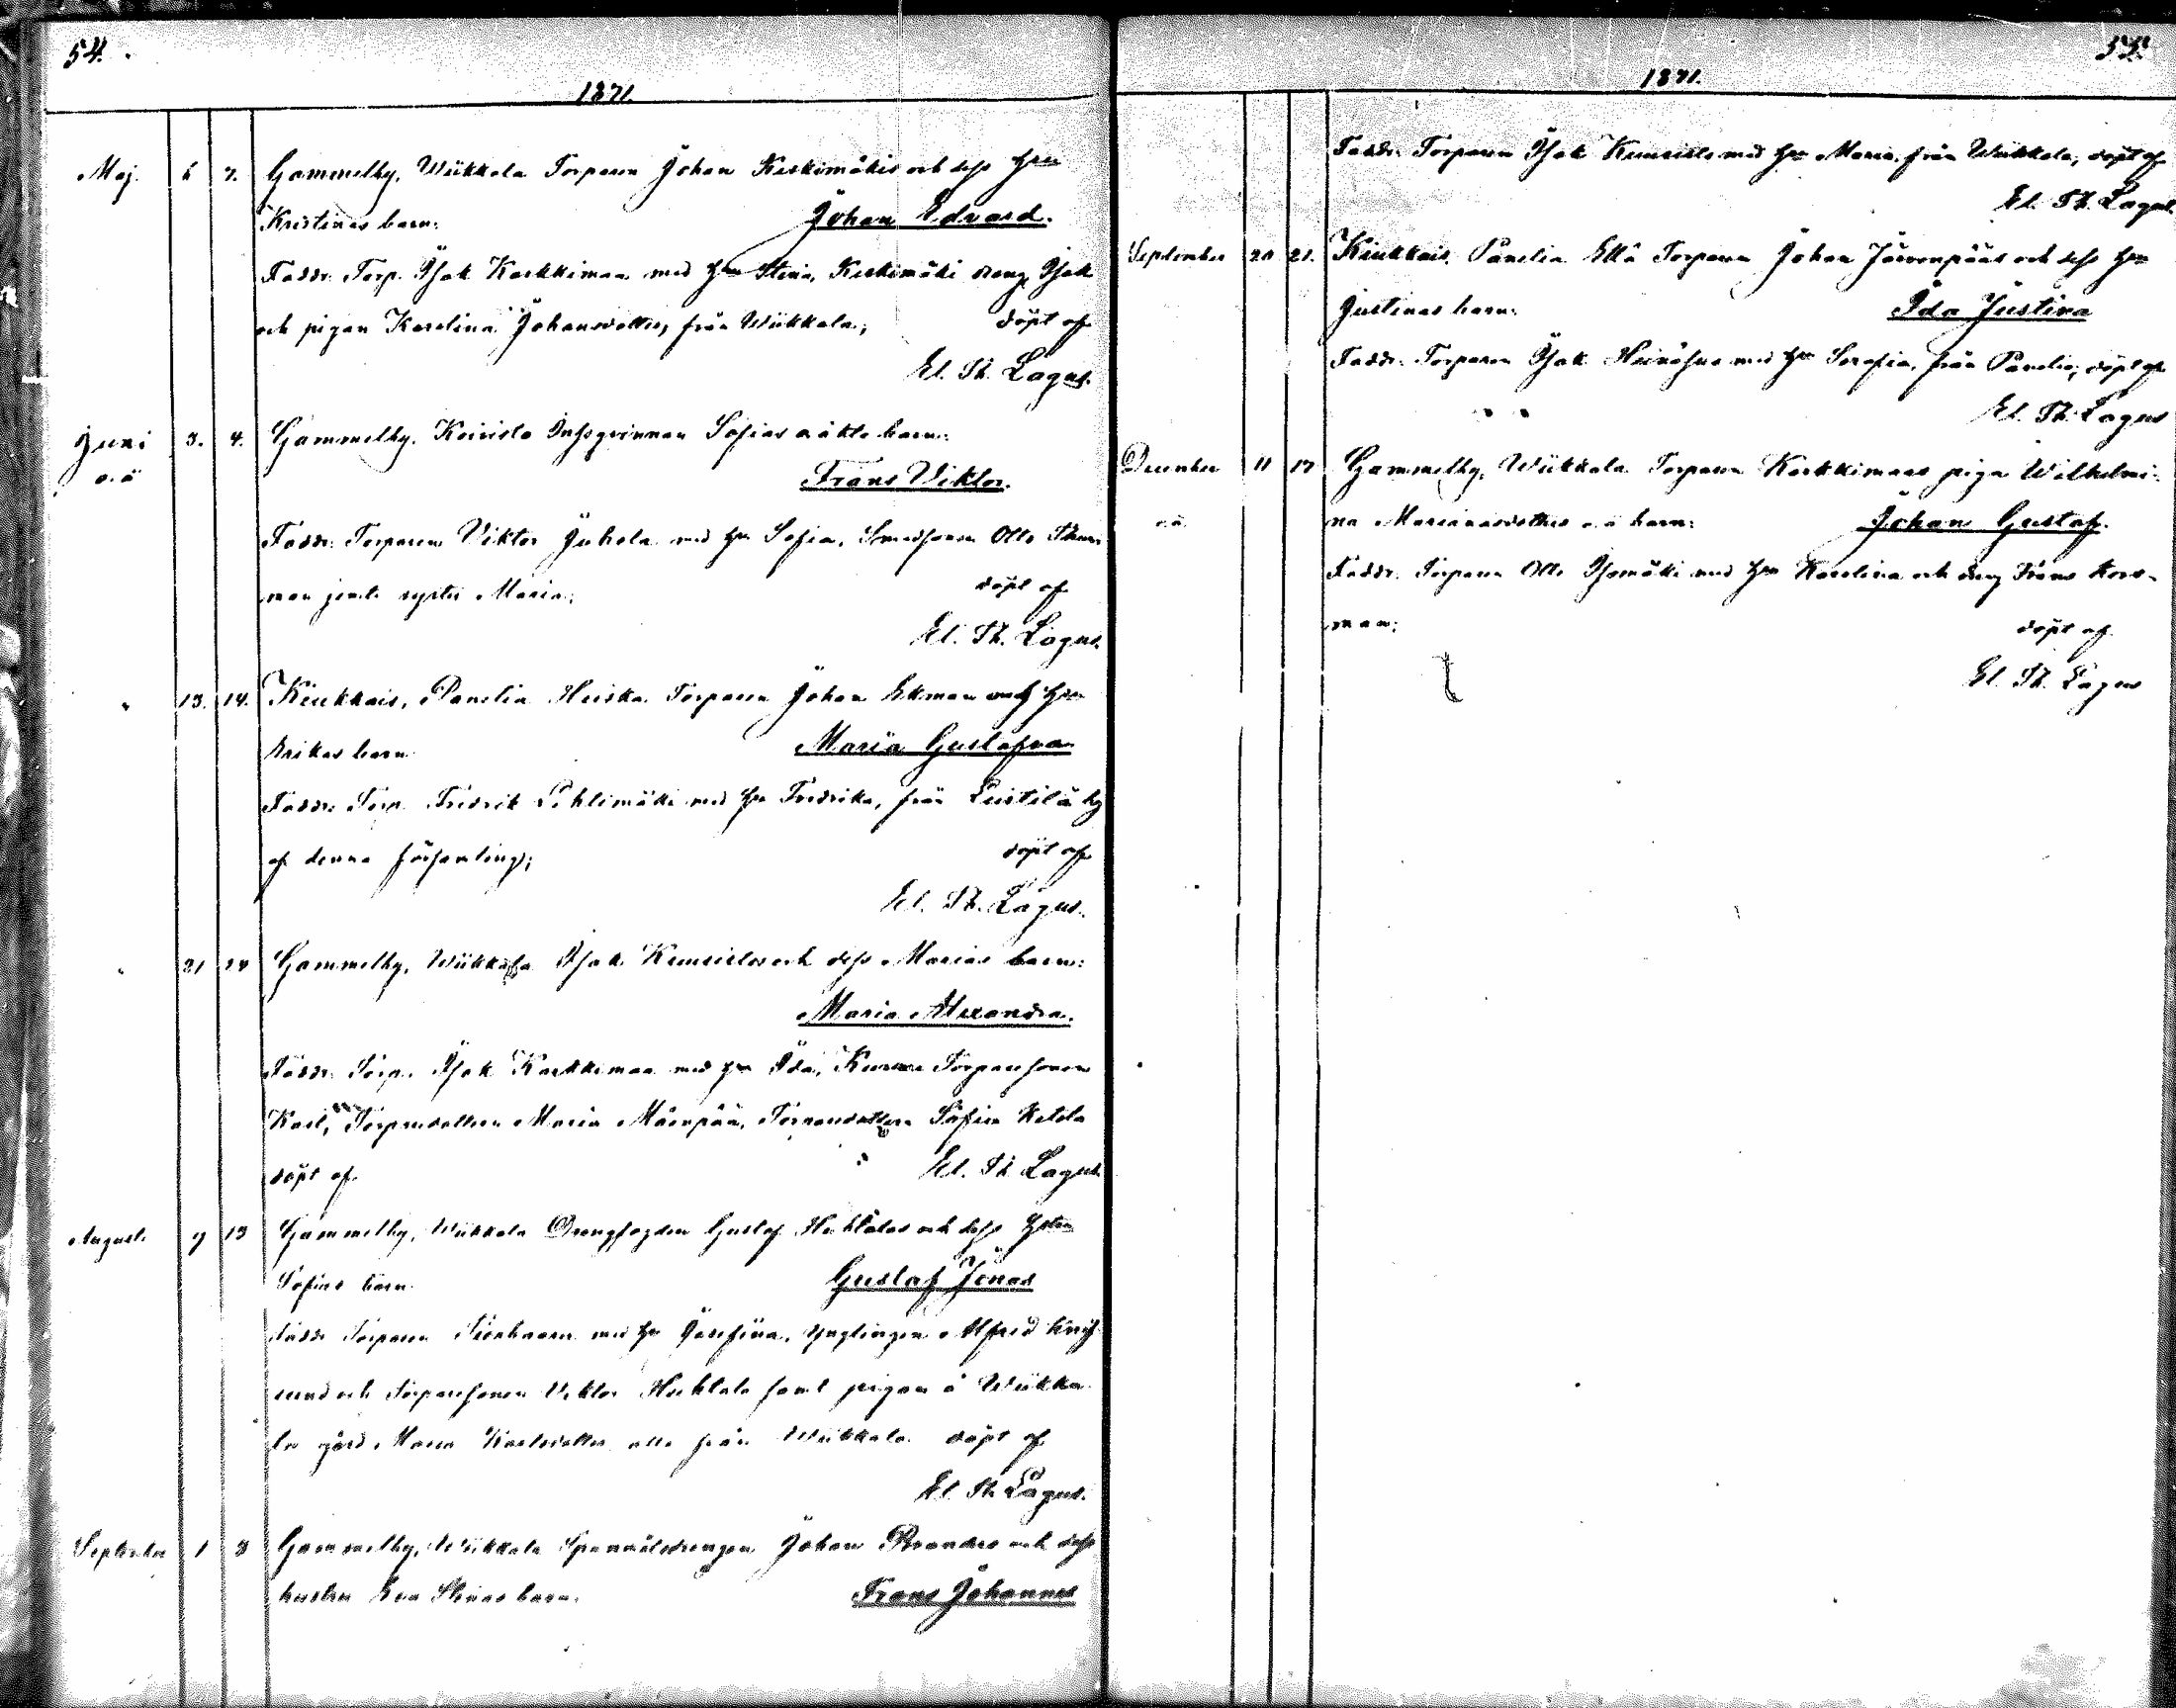 54.
1871.
Maj. 6 7. Gammelby, Wiikkala Torparen Johan Keskimäkis och dess hru
Kristinas barn: Johan Edvard.
Faddr: Torp. Isak Karkkimaa med hru Stina, Keskimäki dreng Isak
och pigan Karolina Johansdotter, från Wiikkala; döpt af
El. Th. Lagus.
Juni 3. 4. Gammelby. Koivisto Inhysqvinnan Sofias o äkta barn:
o.ä Frans Viktor.
Faddr: Torparen Viktor Juhola med hru Sofia, Smedsonen Otto
man jemte syster Maria; döpt af
El. Th. Lagus.
" 13. 14. Kiukkais, Panelia Heiska Torparen Johan Ekman och hru
Erikas barn Maria Gustafva
Faddr: Torp. Fredrik Pihlimäki med hru Fredrika, från Leistilä by
af denna församling; döpt af
El. Th. Lagus.
" 21 24 Gammelby, Wiikkala Isak och dess Marias barn:
Maria Alexandra.
Faddr: Torp. Isak Karkkimaa med hru Ida, Torparesonen
Karl, Torparedottern Maria Mäenpää, Torparedottern Sofia Ketola
döpt af El. Th. Lagus.
Augusti 9 13 Gammelby, Wiikkala Drengfogden Gustaf och dess hustru
Sofias barn Gustaf Jonas
Faddr Torparen med hru Josefina, ynglingen Alfred
och Torparesonen Viktor samt pigan å Wiikka
la gård Maria Karlsdotter alla från Wiikkala döpt af
El. Th. Lagus.
September 1 3 Gammelby, Wiikkala Spannmålsdrengen Johan Branders och dess
hustru Eva Stinas barn. Frans Johannes
55.
1871.
Faddr: Torparen Isak med hru Maria från Wiikkala, döpt af
El. Th. Lagus.
September 20 21. Kiukkais, Panelia Ellä Torparen Johan Järvenpääs och dess hru
Justinas barn: Ida Justina
Faddr: Torparen Isak med hru Serafia, från Panelia, döpt af
El. Th. Lagus
December 11 17 Gammelby, Wiikkala Torparen Karkkimaas piga Wilhelmi-
o.ä. na Mariänasdotters o.ä barn: Johan Gustaf.
Faddr: Torparen Otto Isomäki med hru Karolina och dreng Frans
man; döpt af
El. Th. Lagus